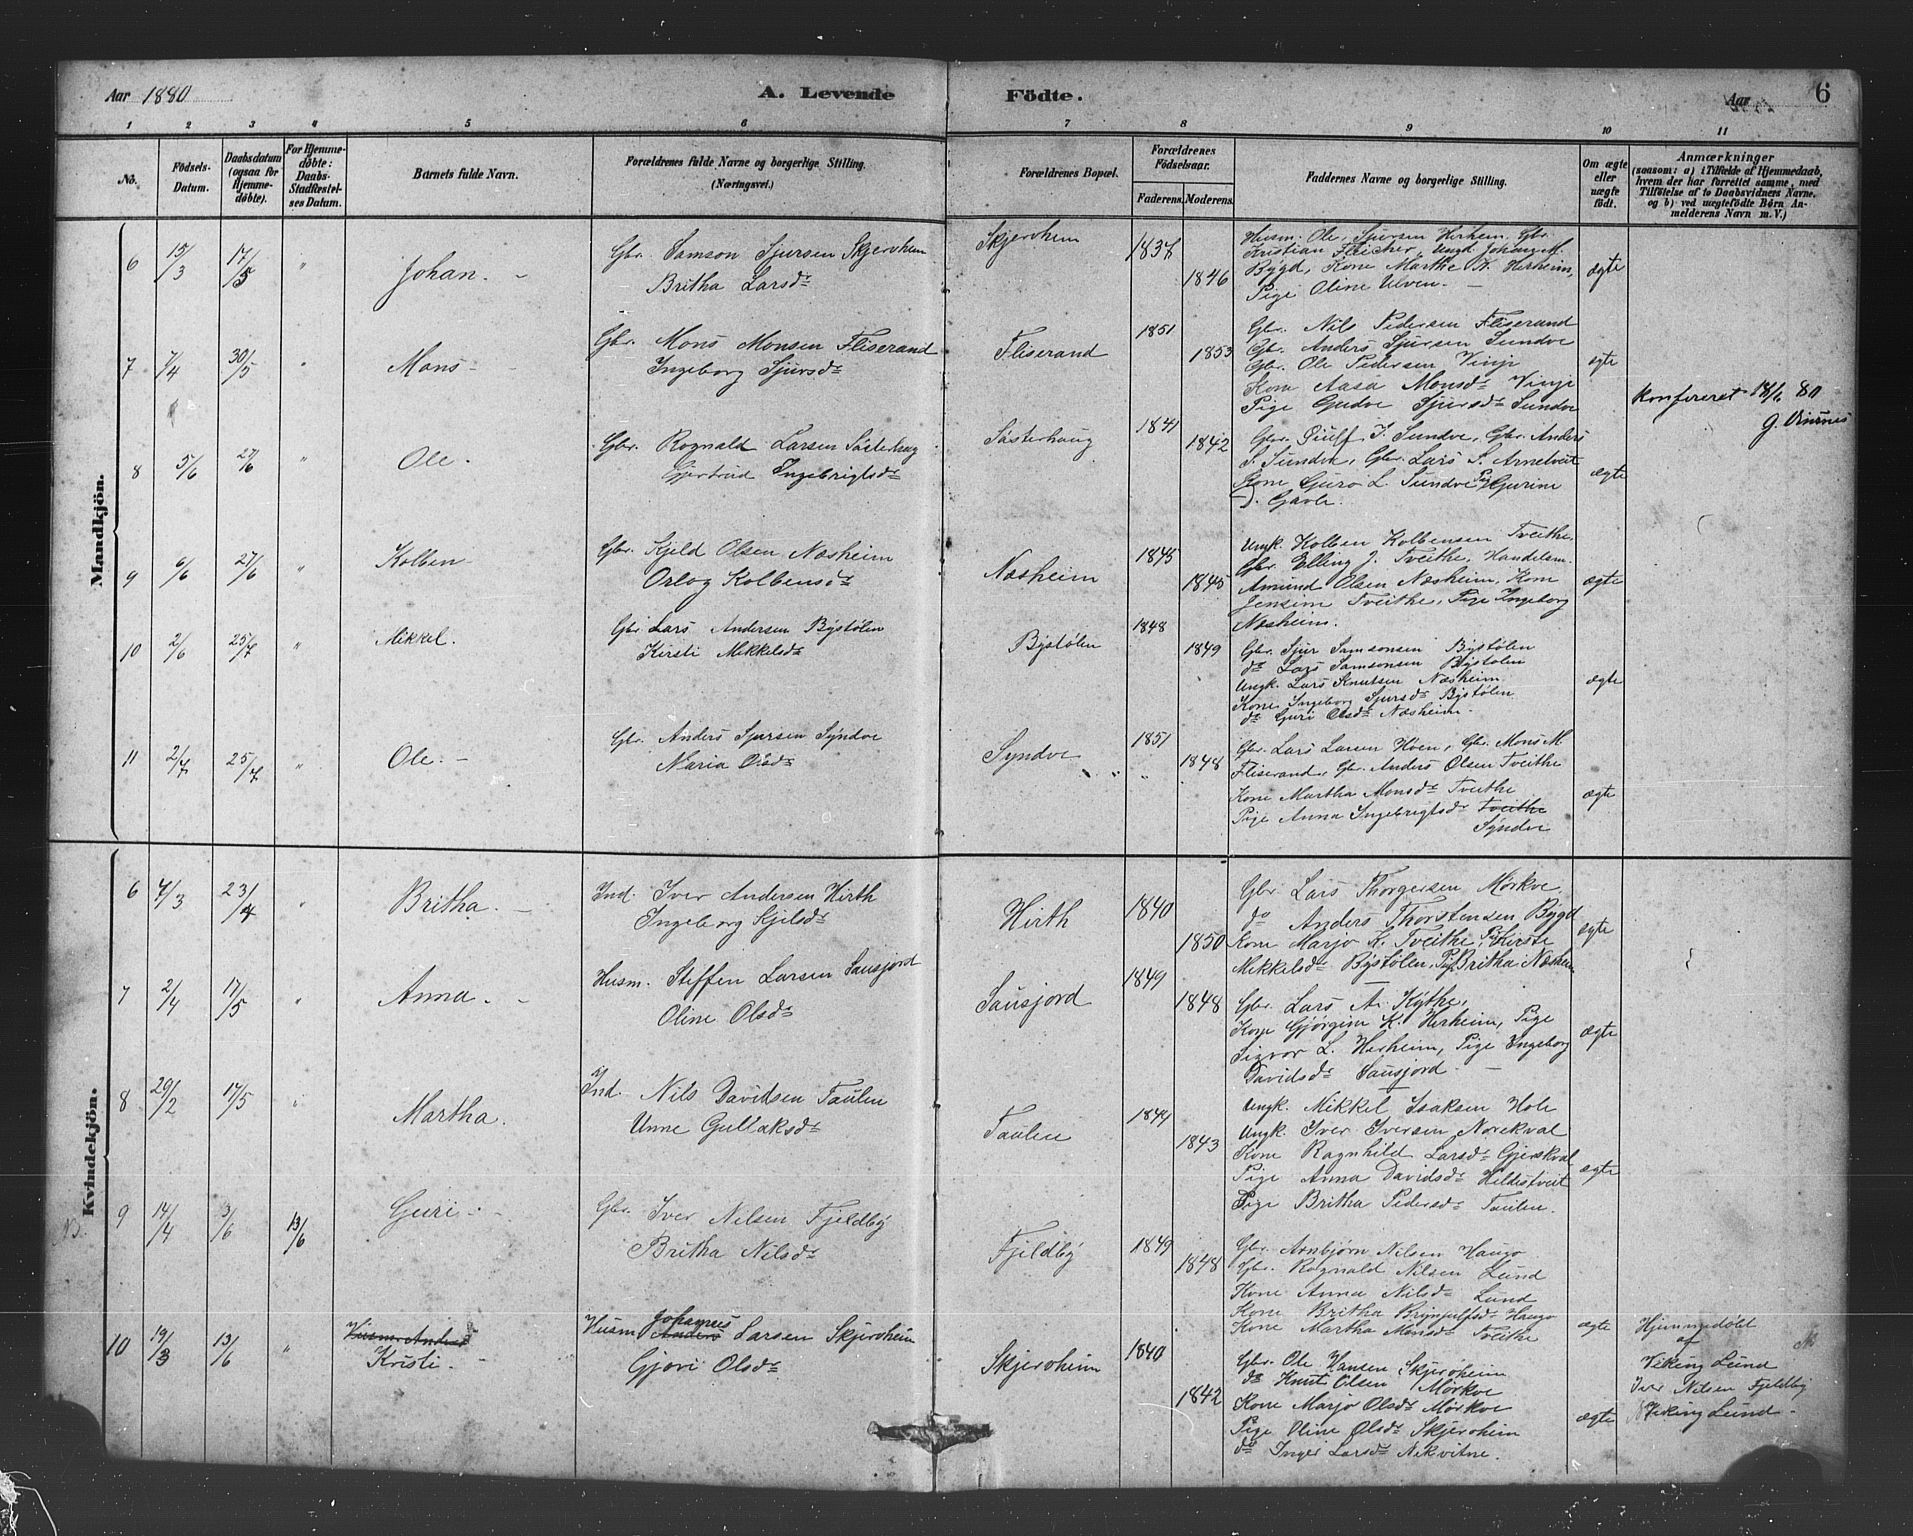 Aar 1880
A. Levende
Födte.
Aar
6
1 2 3 4 5 6 7 8 9 10 11
No.
Födsels-Datum.
Daabsdatum (ogsaa for Hjemmedøbte).
For Hjemmedøbte: Daabs-Stadfæstelses Datum.
Barnets fulde Navn.
Forældrenes fulde Navne og borgerlige Stilling. (Næringsvei.)
Forældrenes Bopæl.
Forældrenes Födselsaar.
Faderens.
Moderens.
Faddernes Navne og borgerlige Stilling.
Om ægte eller uægte födt.
Anmærkninger
(saasom: a) i Tilfælde af Hjemmedaab,
hvem der har forrettet samme, med
Tilföielse af to Daabsvidners Navne.
og b) ved uægtefödte Börn An-
melderens Navn m. V.)
Mandkjön.
6 15/3 17/5 " Johan.
Gbr. Samson Sjursen Skjervheim
Britha Larsdr
Skjervheim 1837 1846
Husm. Ole Sjursen Herheim, Gbr.
Kristian Fleicher, Ungk. Johan M.
Bygd, Kone Marthe K. Herheim,
Pige Oline Ulven.
ægte
7 7/4 30/5 " Mons
Gbr. Mons Monsen Fliserand
Ingeborg Sjursdr
Fliserand 1851 1853
Gbr. Nils Pedersen Fliserand
Gbr. Anders Sjursen Sundve
Gbr. Ole Pedersen Vinje
Kone Aasa Monsdr Vinje
Pige Gudve Sjursdr Sundve
ægte
Konfereret 80
8 5/6 27/6 " Ole.
Gbr. Rognald Larsen Sästerhaug
Gjertrud Ingebrigtsdr
Sästerhaug 1841 1842
Gbr. J. Sundve, Gbr. Anders
S. Sundve, Gbr. Lars S. Arnetveit
Kone Guro L. Sundve Pige Gurine
Gavle.
ægte
9 6/6 27/6 " Kolben
Gbr. Kjeld Olsen Næsheim
Orlog Kolbensdr
Næsheim 1845 1845
Ungk. Kolben Kolbensen Tveithe,
Gbr. Elling J. Tveithe, Handelsm.
Amund Olsen Næsheim, Kone
Jensine Tveithe, Pige Ingeborg
Næsheim.
ægte
10 2/6 25/7 " Mikkel.
Gbr. Lars Andersen Bystølen
Kirsti Mikkelsdr
Bystølen 1848 1849
Gbr. Sjur Samsonsen Bystølen
do Lars Samsonsen Bystølen
Ungk. Lars Knutsen Næsheim
Kone Ingeborg Sjursdr Bystølen
do Guri Olsdr Næsheim.
ægte
11 2/7 25/7 " Ole.
Gbr. Anders Sjursen Syndve
Maria Olsdr
Syndve 1851 1848
Gbr. Lars Larsen Hoen, Gbr. Mons M.
Fliserand, Gbr. Anders Olsen Tveithe
Kone Martha Monsdr Tveithe
Pige Anna Ingebrigtsdr Tveithe
Syndve
ægte
Kvindekjön.
6 7/3 23/4 " Britha.
Ind. Iver Andersen Hirth
Ingeborg Kjelsdr
Hirth 1840 1850
Gbr. Lars Thorgersen Mörkve.
do Anders Thorstensen Bygd
Kone Marjo K. Tveithe, Pige Kirste
Mikkelsdr Bystølen, Pige Britha Næsheim
ægte
7 2/4 17/5 " Anna.
Husm. Steffen Larsen Sausjord
Oline Olsdr
Sausjord 1849 1848
Gbr. Lars A. Kythe,
Kone Gjørgine K. Herheim, Pige
Sigvor L. Herheim, Pige Ingeborg
Davidsdr Sausjord.
ægte
8 29/2 17/5 " Martha.
Ind. Nils Davidsen Taulen
Unne Gullaksdr
Taulen 1849 1843
Ungk. Mikkel Isaksen Hole
Ungk. Iver Iversen Norekval
Kone Ragnhild Larsdr Gjerskval
Pige Anna Davidsdr Hildestveit
Pige Britha Pedersdr Taulen.
ægte
9 14/4 3/6 13/6 Guri.
Gbr. Iver Nilsen Fjeldby
Britha Nilsdr
Fjeldby 1849 1848
Gbr. Arnbjørn Nilsen Haugo
Gbr. Rognald Nilsen Lund
Kone Anna Nilsdr Lund
Kone Britha Brynjulfsdr Haugo
Kone Martha Monsdr Tveithe
ægte
Hjemmedøbt
af
Viking Lund
Iver Nilsen Fjeldby
Viking Lund.
10 19/3 13/6 " Husm. Anders
Kristi.
Husm Johannes Anders Larsen Skjervheim
Gjøri Olsdr
Skjervheim 1840 1842
Gbr. Ole Hansen Skjervheim
do Knut Olsen Mörkve
Kone Marjo Olsdr Mörkve
Pige Oline Olsdr Skjervheim
do Inger Larsdr Nekvitne.
ægte